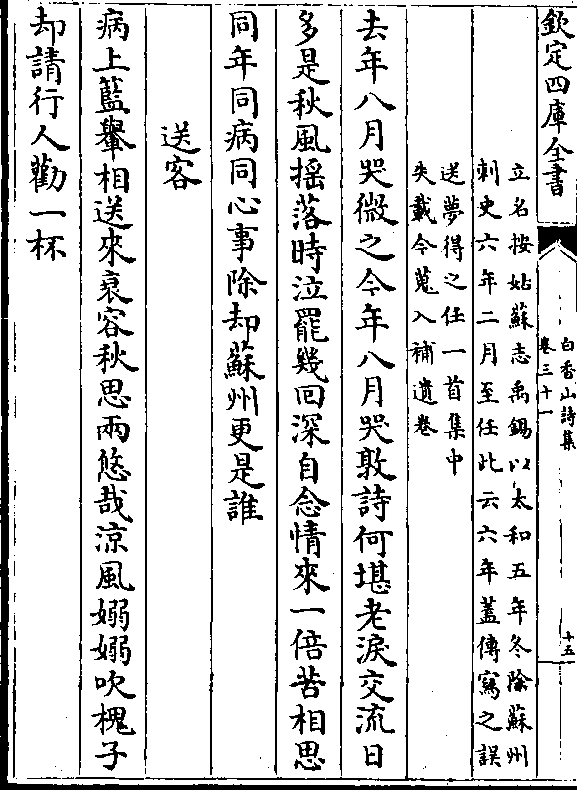 欽定四庫全書
白香山詩集
卷三十一
十五
立名按姑蘇志禹錫以太和五年冬除蘇州
刺史六年二月至任此云六年蓋傳寫之誤
送夢得之任一首集中
失載今蒐入補遺卷
去年八月哭微之今年八月哭敦詩何堪老淚交流日
多是秋風搖落時泣罷幾回深自念情來一倍苦相思
同年同病同心事除却蘇州更是誰
送客
病上籃轝相送來衰容秋思兩悠哉涼風嫋嫋吹槐子
却請行人勸一杯